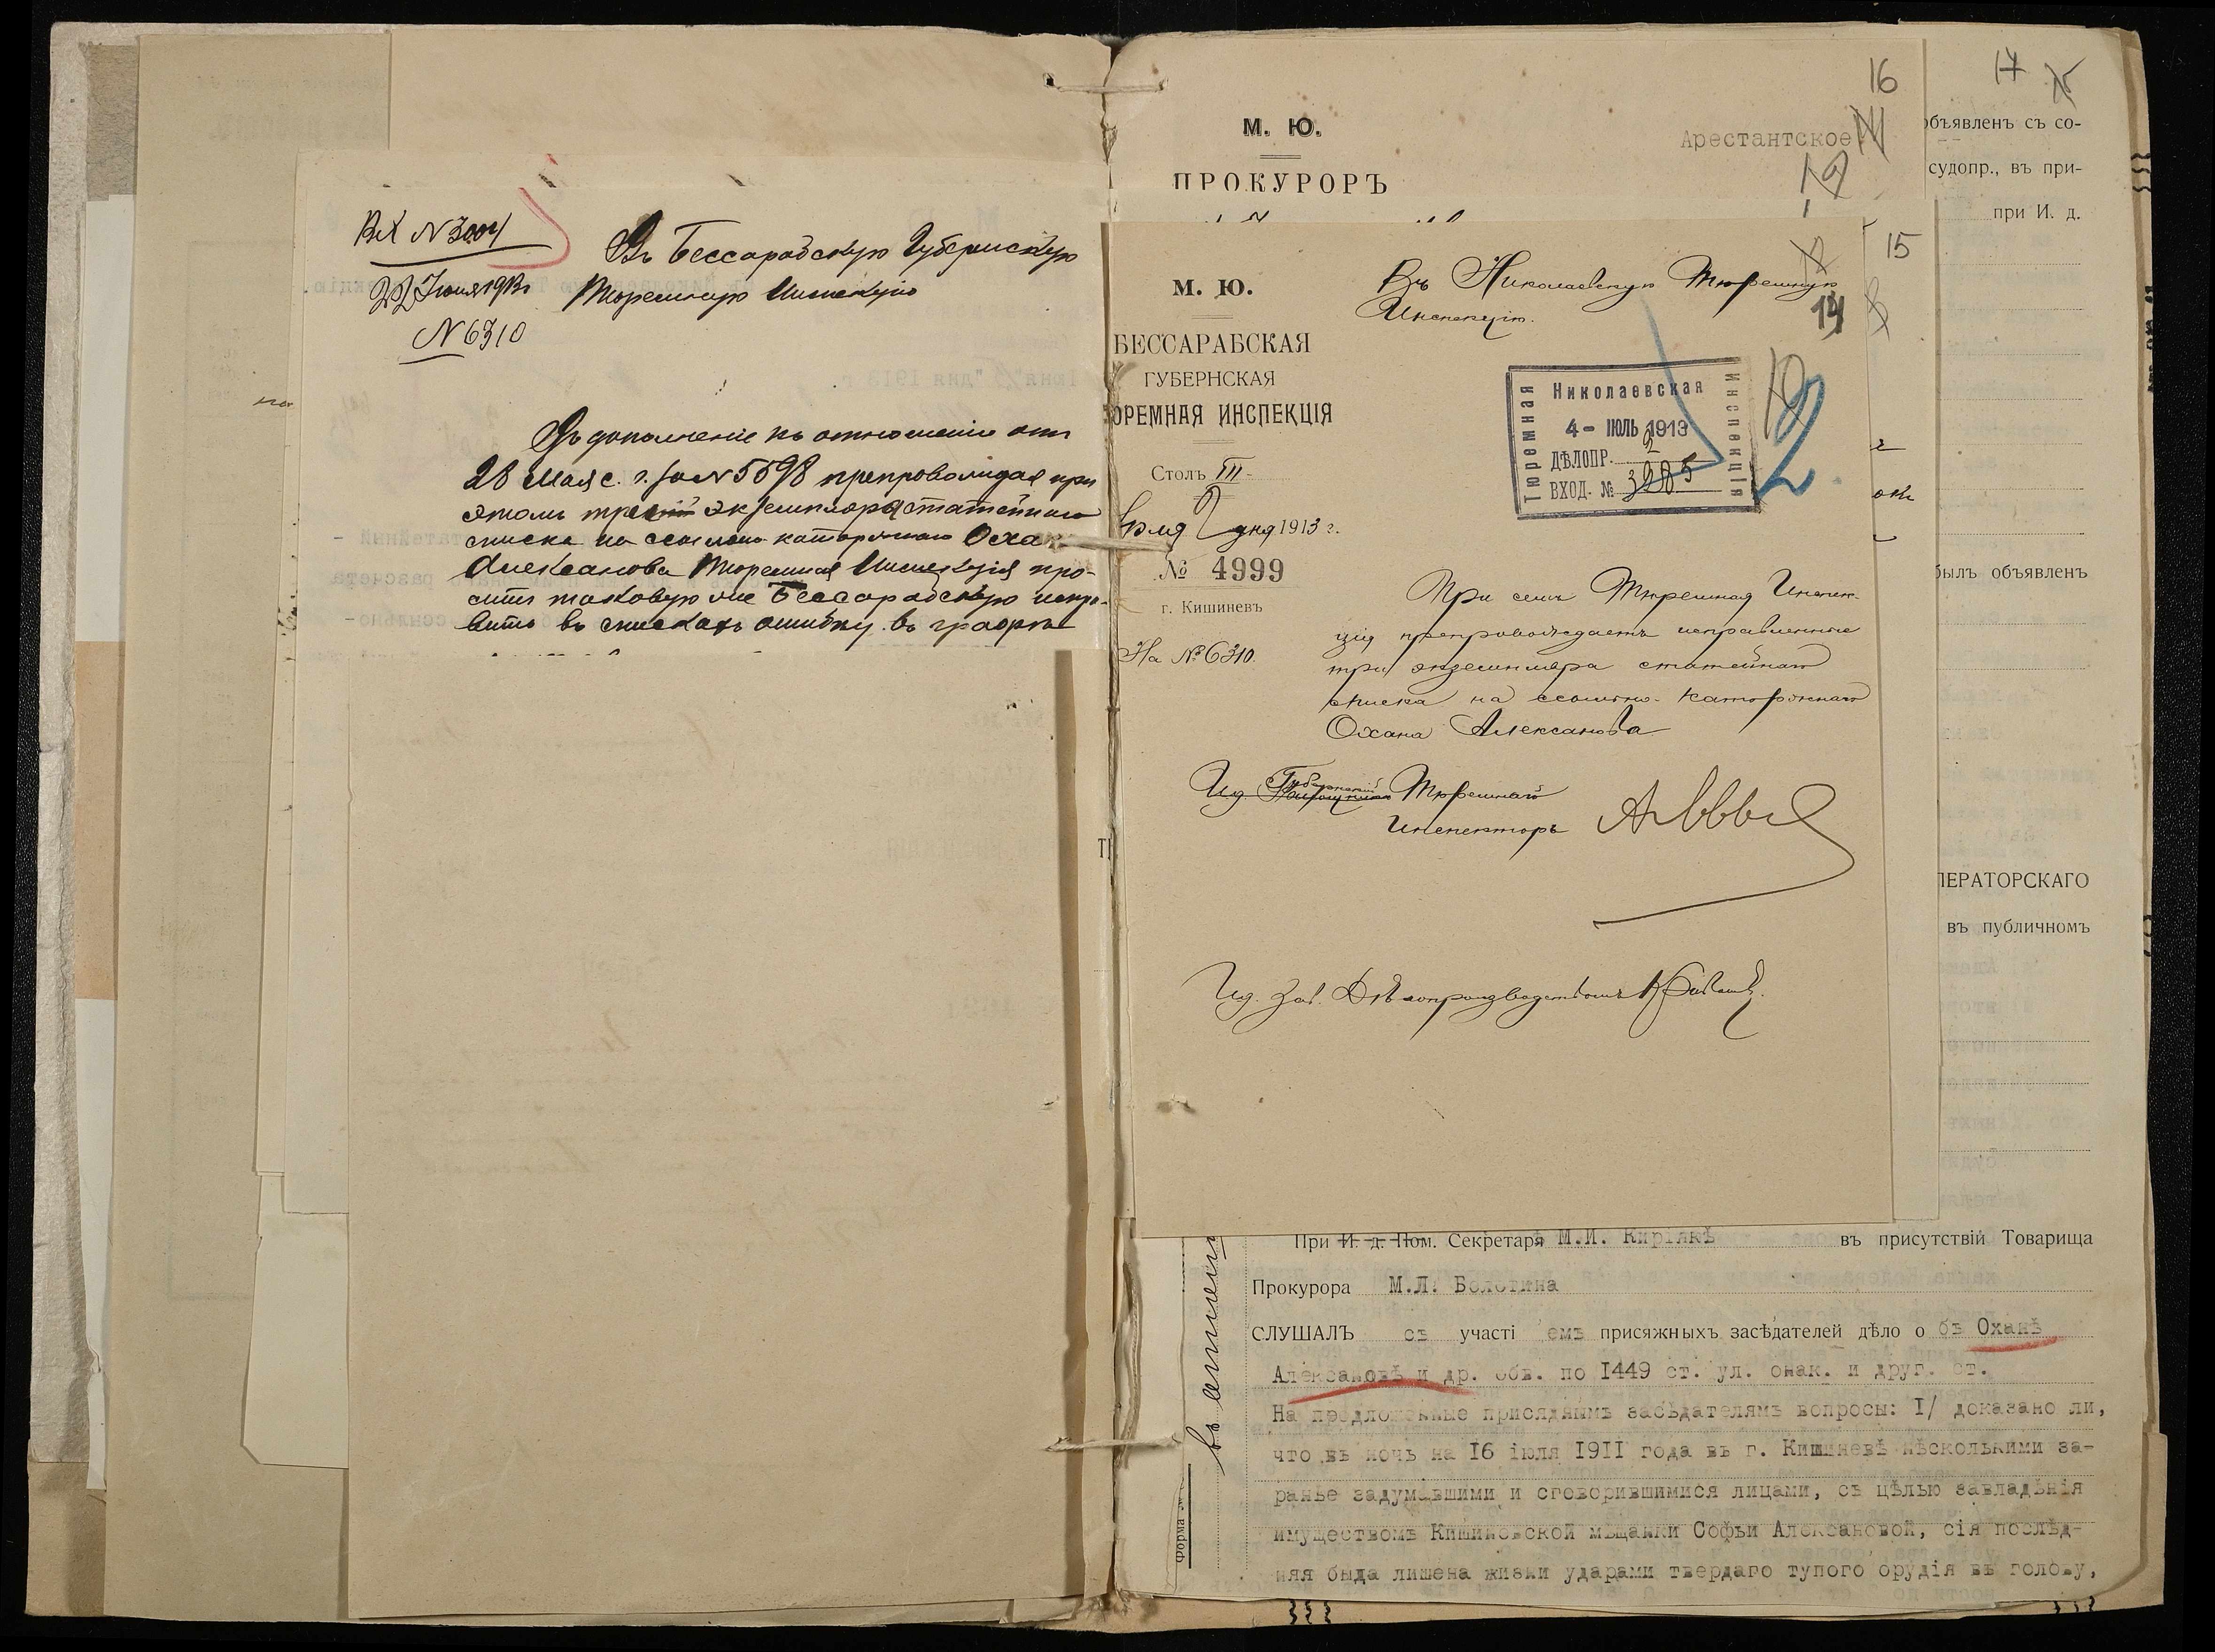 Вх N 3004
22 Июня 1913 г
N 6310
Въ Бессарабскую Губернскую
Тюремную Инспекцію
Въ дополненіе къ отношенію отъ
28 Мая с. г. за N 5598 препровождая при
этомъ три экземпляра статейнаго
списка на ссыльно каторжнаго Охана
Алексанова Тюремная Инспекція про-
ситъ таковую же Бессарабскую испра-
вить въ спискахъ ошибку въ графѣ
16
М. Ю.
Арестантское
ПРОКУРОРЪ
15
14
М. Ю.
БЕССАРАБСКАЯ
ГУБЕРНСКАЯ
ЮРЕМНАЯ ИНСПЕКЦІЯ
Столъ III
2 дня 1913 г.
№ 4999
г. Кишиневъ
На № 6310.
Въ Николаевскую Тюремную
Инспекцію.
Николаевская
Тюремная
Инспекція
4 - ІЮЛЬ 1913
ДѢЛОПР. 2
ВХОД. № 3285
2
При семъ Тюремная Инспек-
ція препровождаетъ исправленные
три экземпляра статейнаго
списка на ссыльно-каторжнаго
Охана Алексанова
И.д. Губернскій Тюремнаго
Инспектора
И.д. Зав. Дѣлопроизводствомъ
17
объявленъ съ со-
судопр., въ при-
при И. д.
былъ объявленъ
ПЕРАТОРСКАГО
въ публичномъ
При И. д. Пом. Секретаря М.И. Киріякѣ въ присутствій Товарища
Прокурора М.Л. Болотина
СЛУШАЛЪ съ участі емъ присяжныхъ засѣдателей дѣло о бъ Оханѣ
Алексановѣ и др. обв. по 1449 ст. ул. онак. и друг. ст.
На предложенные присяднымъ засѣдателямъ вопросы: I/ доказано ли,
что въ ночь на 16 іюля 1911 года въ г. Кишиневѣ нѣсколькими за-
ранѣе задумавшими и сговорившимися лицами, съ цѣлью завладѣнія
имуществомъ Кишиневской мѣщанки Софьи Алексановой, сія послѣд-
няя быда лишена жизни ударами твердаго тупого орудія въ голову,
Форма